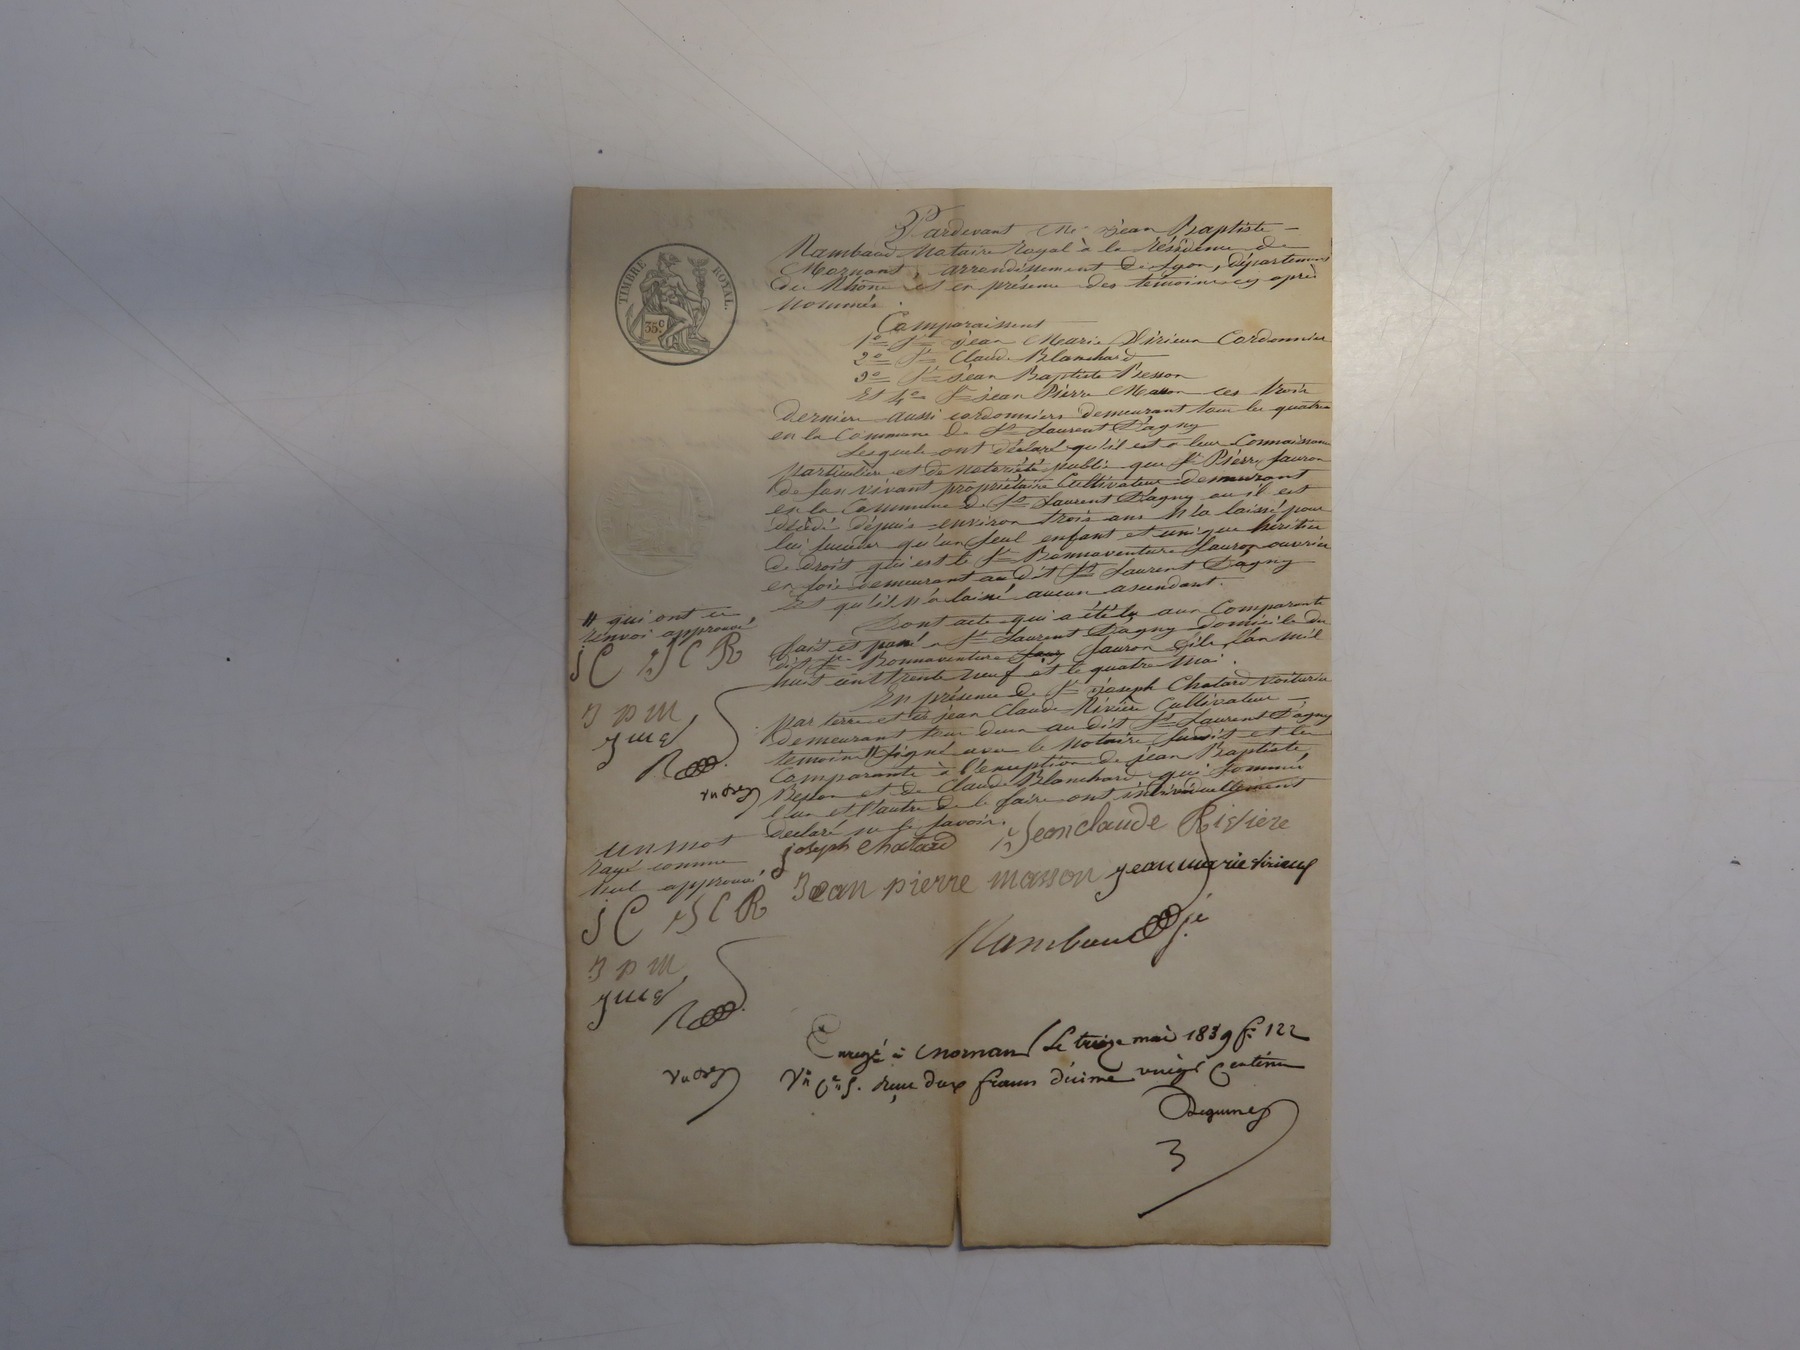 TIMBRE ROYAL.
35c.
Pardevant Me Jean Baptiste
Rambaud Notaire Royal à la résidence de
Mornant, arrondissement de Lyon, département
du Rhône et en présence des témoins cy après
nommés.
Comparaissent
1o Sr Jean Marie Virieux Cordonnier
2o Sr Claude Blanchard
3o Sr Jean Baptiste Besson
Et 4o Sr Jean Pierre Masson ces trois
derniers aussi cordonniers demeurant tous les quatre
en la Commune de St Laurent D'agny
Lesquels ont déclaré qu'il est a leur Connaissance
Particulière et de notoriété publique que Sr Pierre Jauron
de son vivant propriétaire Cultivateur demeurant
en la Commune de St Laurent D'agny ou il est
décédé depuis environ trois ans N'a laissé pour
lui succéder qu'un seul enfant et unique héritier
de droit qui est le Sr Bonnaventure Jauron ouvrier
en soie demeurant au dit St Laurent D'agny
Et qu'il N'a laissé aucun ascendant.
Dont acte qui a été lu aux Comparants
fait et passé a St Laurent D'agny domicile du
dit Sr Bonnaventure Jauron fils l'an mil
huit cent trente neuf et le quatre Mai.
En présence de Sr Joseph Chatard voiturier
par terre et de Jean Claude Rivière Cultivateur
demeurant tous deux au dit St Laurent D'agny
temoins # signé avec le Notaire susdit et les
Comparants à l'exception de Jean Baptiste
Besson et de Claude Blanchard qui sommé
l'un et l'autre de le faire ont individuellement
déclaré ne le savoir.
# qui ont ce
renvoi approuvé
J C J C R
J P M
J M V
R
un mot
rayé comme
nul approuvé
J C J C R
J P M
J M V
R
joseph Chatard Jean claude Riviere
Jean pierre masson jean marie virieux
Rambaud
Enregé à Mornant Le treize mai 1839 fo 122
Vo Ce 5. reçu deux francs décime vingt Centimes